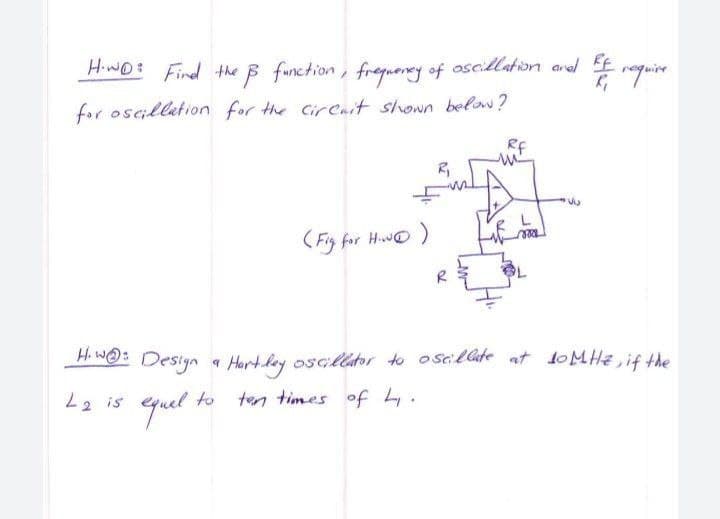 H.W①: Find the β function, frequency of oscillation and Rf/R1 require
for oscillation for the circuit shown below?
Rf
R1
- 
+
Vo
R L
(Fig for H.W①)
R L
H.W②: Design a Hartley oscillator to oscillate at 10MHz, if the
L2 is equel to ten times of L1.